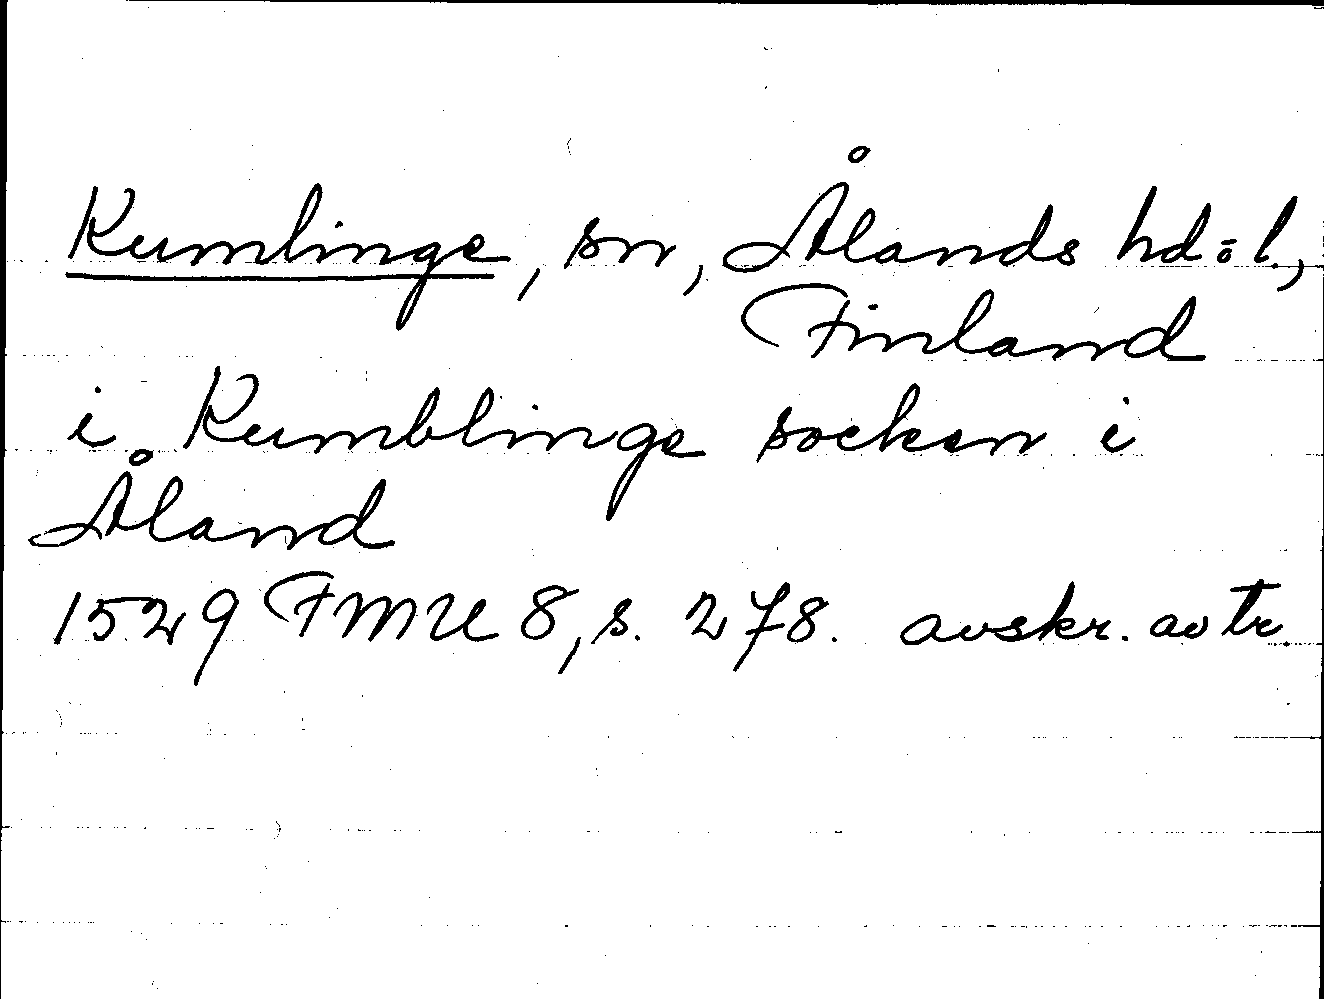 Kumlinge, sn, Ålands hd o l.,
Finland
i Kumblinge socken i
Åland
1529 FMU 8, s. 278. avskr. av tr.